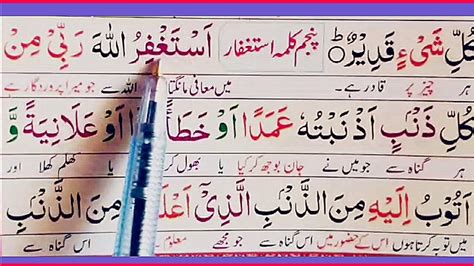 كُلِّ شَیْءٍ قَدِیْرٌ ؕ پنجم کلمہ استغفار اَسْتَغْفِرُ اللهَ رَبِّیْ مِنْ
ہر چیز پر قادر ہے۔ میں معافی مانگتا اللہ سے جو میرا پروردگار ہے
كُلِّ ذَنْۢبٍ اَذْنَبْتُهٗ عَمَدًا اَوْ خَطَأً اَوْ عَلَانِیَةً وَّ
ہر گناہ سے جو میں نے جان بوجھ کر کیا یا بھول کر یا کھلم کھلا اور
اَتُوْبُ اِلَیْهِ مِنَ الذَّنْۢبِ الَّذِیْۤ مِنَ الذَّنْۢبِ
میں توبہ کرتا ہوں اس کے حضور میں اس گناہ سے جو مجھے معلوم اس گناہ سے